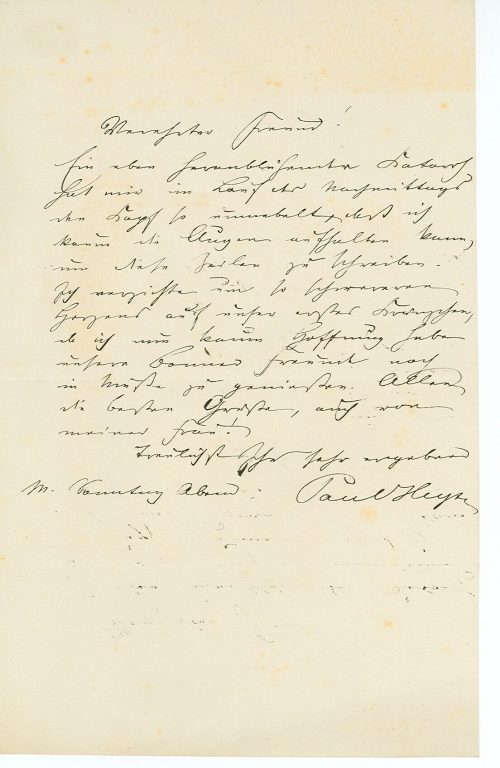 Verehrter Freund!
Ein eben heranblühender Katarrh
hat mir im Lauf des Nachmittags
den Kopf so umnebelt, daß ich
kaum die Augen aufhalten kann,
um diese Zeilen zu schreiben.
Ich verzichte um so schwereren
Herzens auf unser erstes Kränzchen,
als ich nun kaum Hoffnung habe
unsere Bonner Freunde noch
in Muße zu genießen. Allen
die besten Grüße, auch von
meiner Frau!
Treulichst Ihr sehr ergebener
M. Sonntag Abend. Paul Heyse